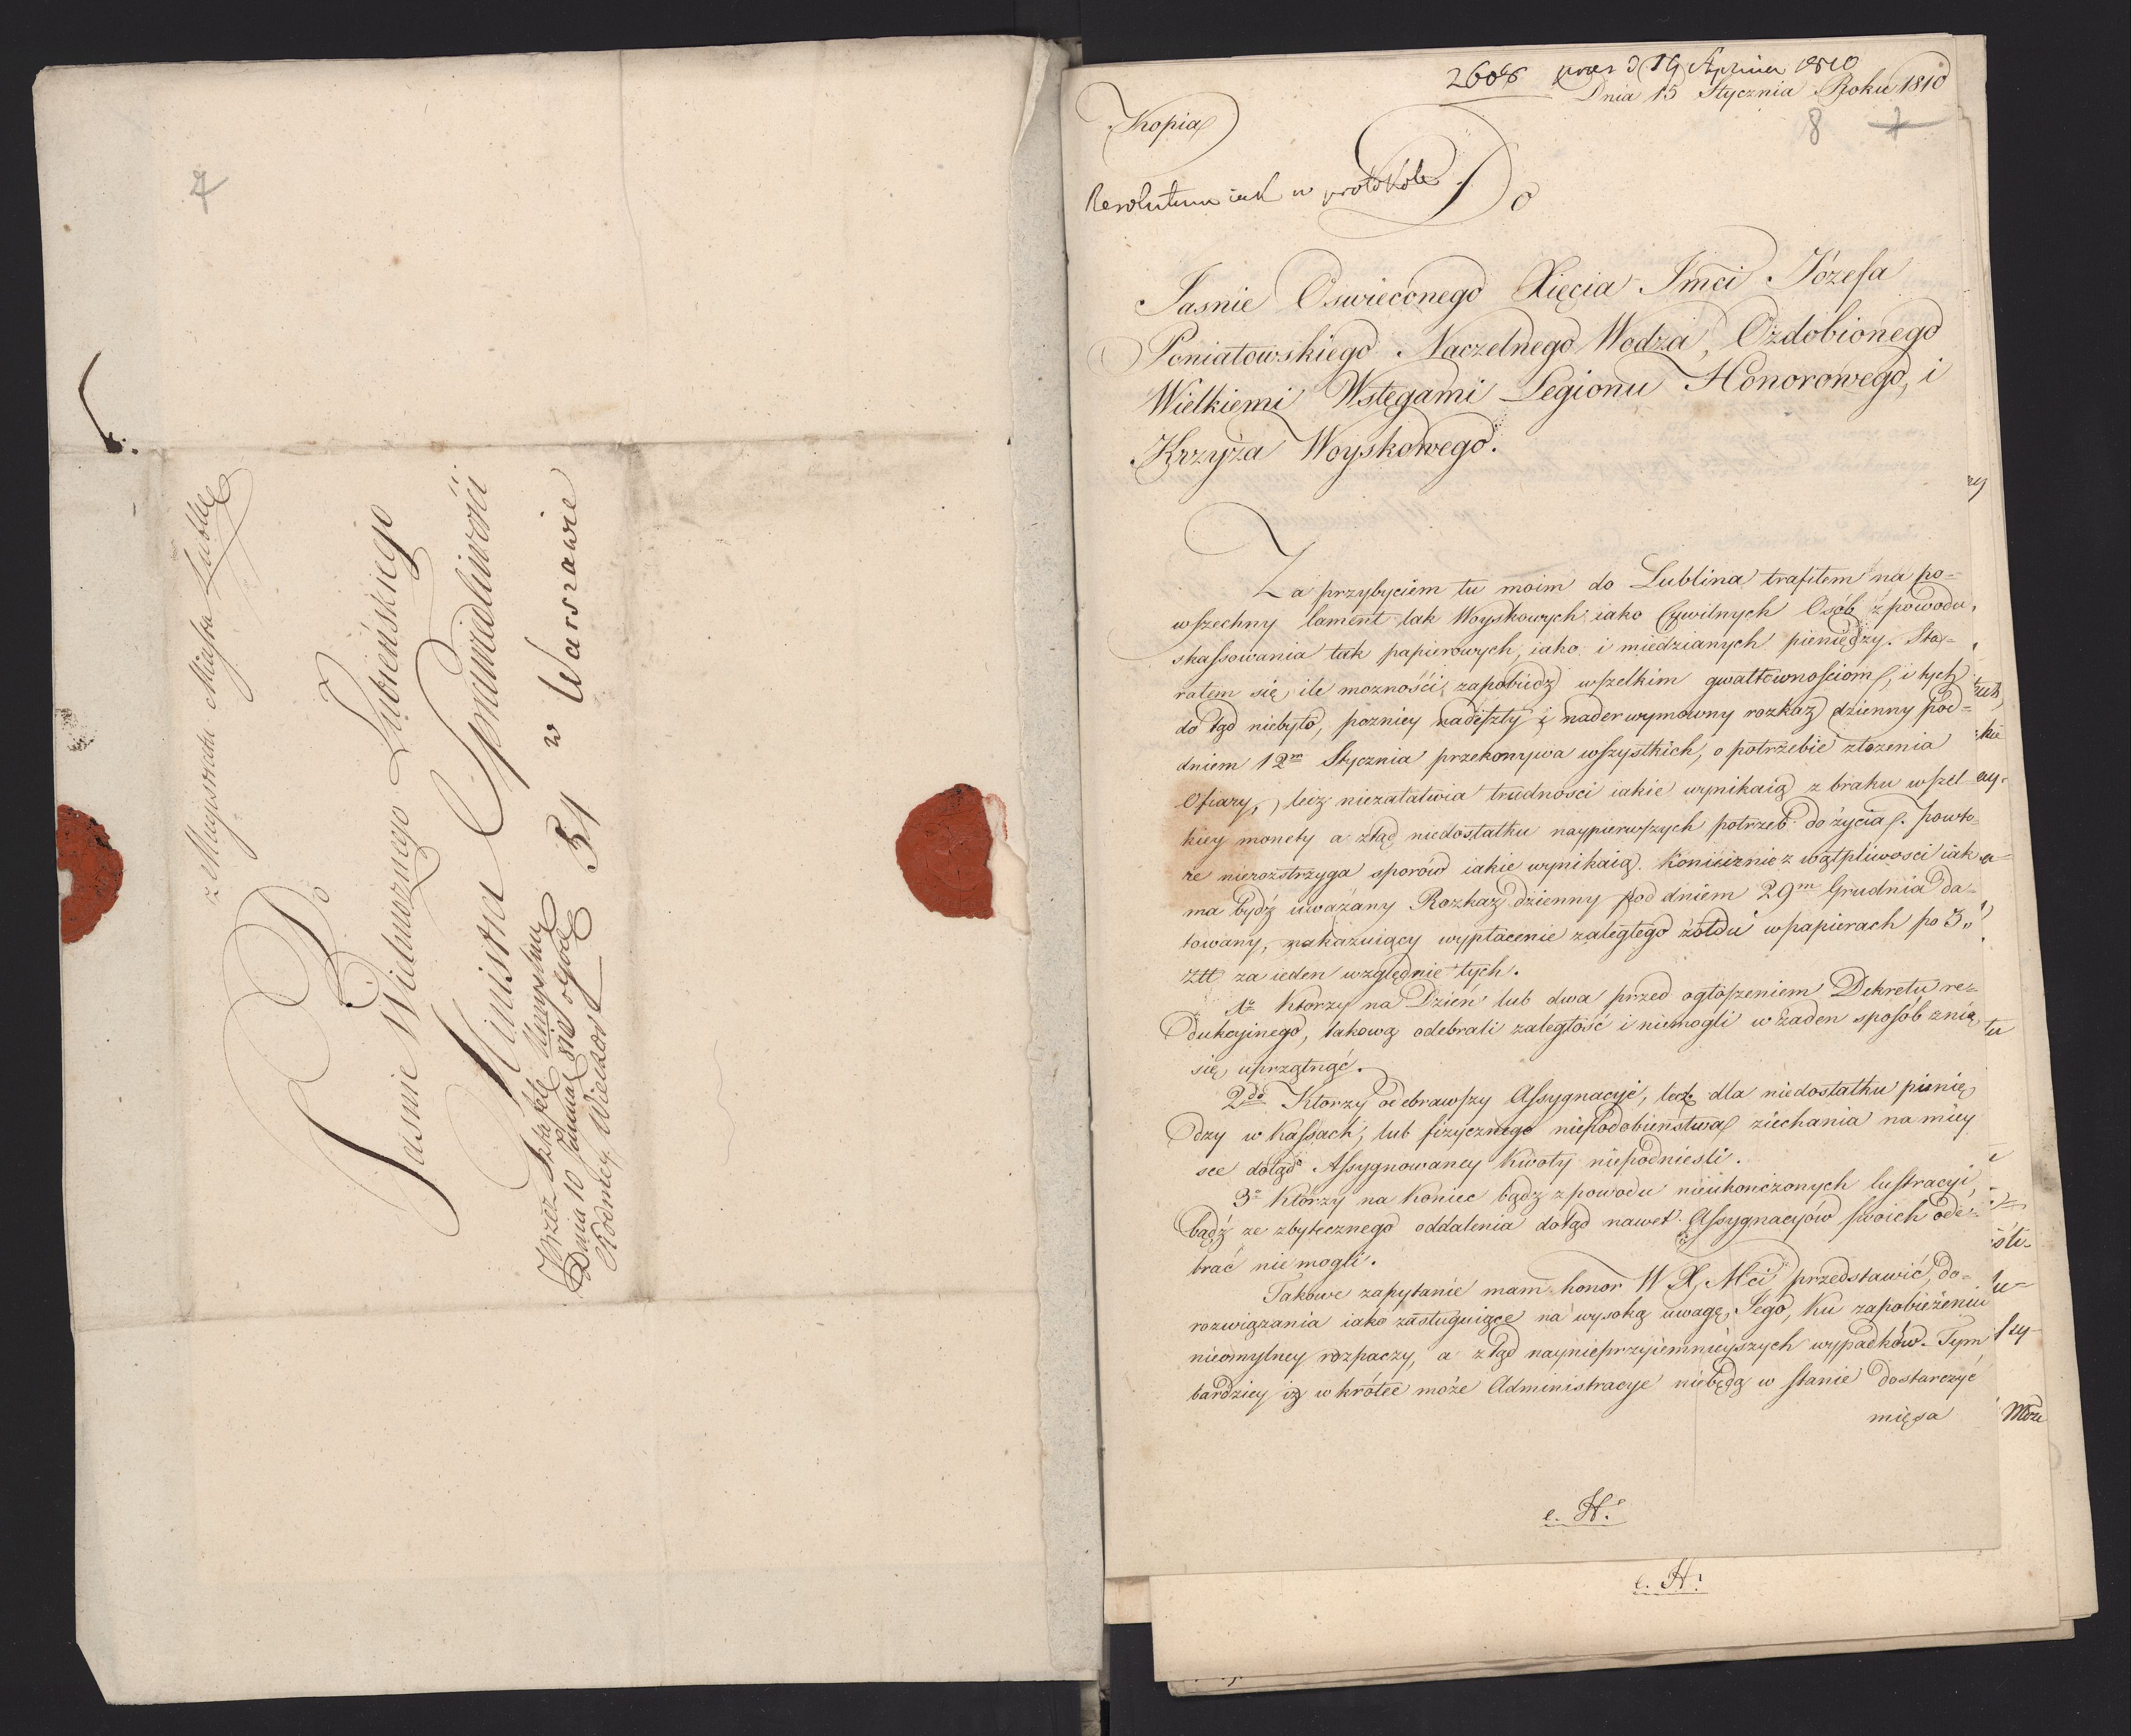 7
z Magistratu Miasta Lublina
Do
Jasnie Wielmoznego Lubieńskiego
Ministra Sprawiedliwości
w Warszawie
Przez Sztafetę Umyslną
Dnia 10
Wieczor
2608 praes d 19 1810
Dnia 15 Stycznia Roku 1810
8 7
Kopia
Resolutum iak w protokole
Do
Jasnie Oswieconego Xięcia Jmci Józefa
Poniatowskiego Naczelnego Wodza, Ozdobionego
Wielkiemi Wstęgami Legionu Honorowego, i
Krzyża Woyskowego.
Za przybyciem tu moim do Lublina trafiłem na po-
wszechny lament tak Woyskowych iako Cywilnych Osób z powodu
skassowania tak papierowych, iako i miedzianych pieniędzy. Sta-
rałem się, ile moznosci, zapobiedz wszelkim gwałtownosciom, i tych
do tąd niebyło, pozniey nadeszły i nader wymowny rozkaz dzienny pod
dniem 12m Stycznia przekonywa wszystkich, o potrzebie złozenia
Ofiary, leiz niezałatwia trudnosci iakie wynikaią z braku wszel-
kiey monety a ztąd niedostatku naypierwszych potrzeb do życia. Powtó-
re nierozstrzyga sporów iakie wynikaią koniecznie z wątpliwosci iak
ma bydź uważany Rozkaz dzienny pod dniem 29m Grudnia da-
towany, nakazuiący wypłacenie zaległego żołdu w papierach po 3"
Ztt za ieden względnie tych.
1o Ktorzy na Dzień lub dwa przed ogłoszeniem Dekretu re-
dukcyinego, takową odebrali zaległość i niemogli w żaden sposób znią
się uprzątnąć.
2do Ktorzy odebrawszy Assygnacye, lecz dla niedostatku pienię
dzy w Kassach, lub fizycznego niepodobieństwa ziechania na miey
sce dotąd Assygnowaney Kwoty niepodniesli.
3o Ktorzy na koniec bądz z powodu nieukonczonych lustracyi
bądź ze zbytecznego oddalenia dotąd nawet Assygnacyów swoich ode-
brać nie mogli.
Takowe zapytanie mam honor W X Mci przedstawić, do-
rozwiązania iako zasługuiące na wysoką uwagę Jego, ku zapobieżeniu
nieomylney rozpaczy, a ztąd naynieprzyiemnieyszych wypadków. Tym
bardziey iz w krótce może Administracye niebędą w stanie dostarczyć
mięsa
e. H.
e. H.